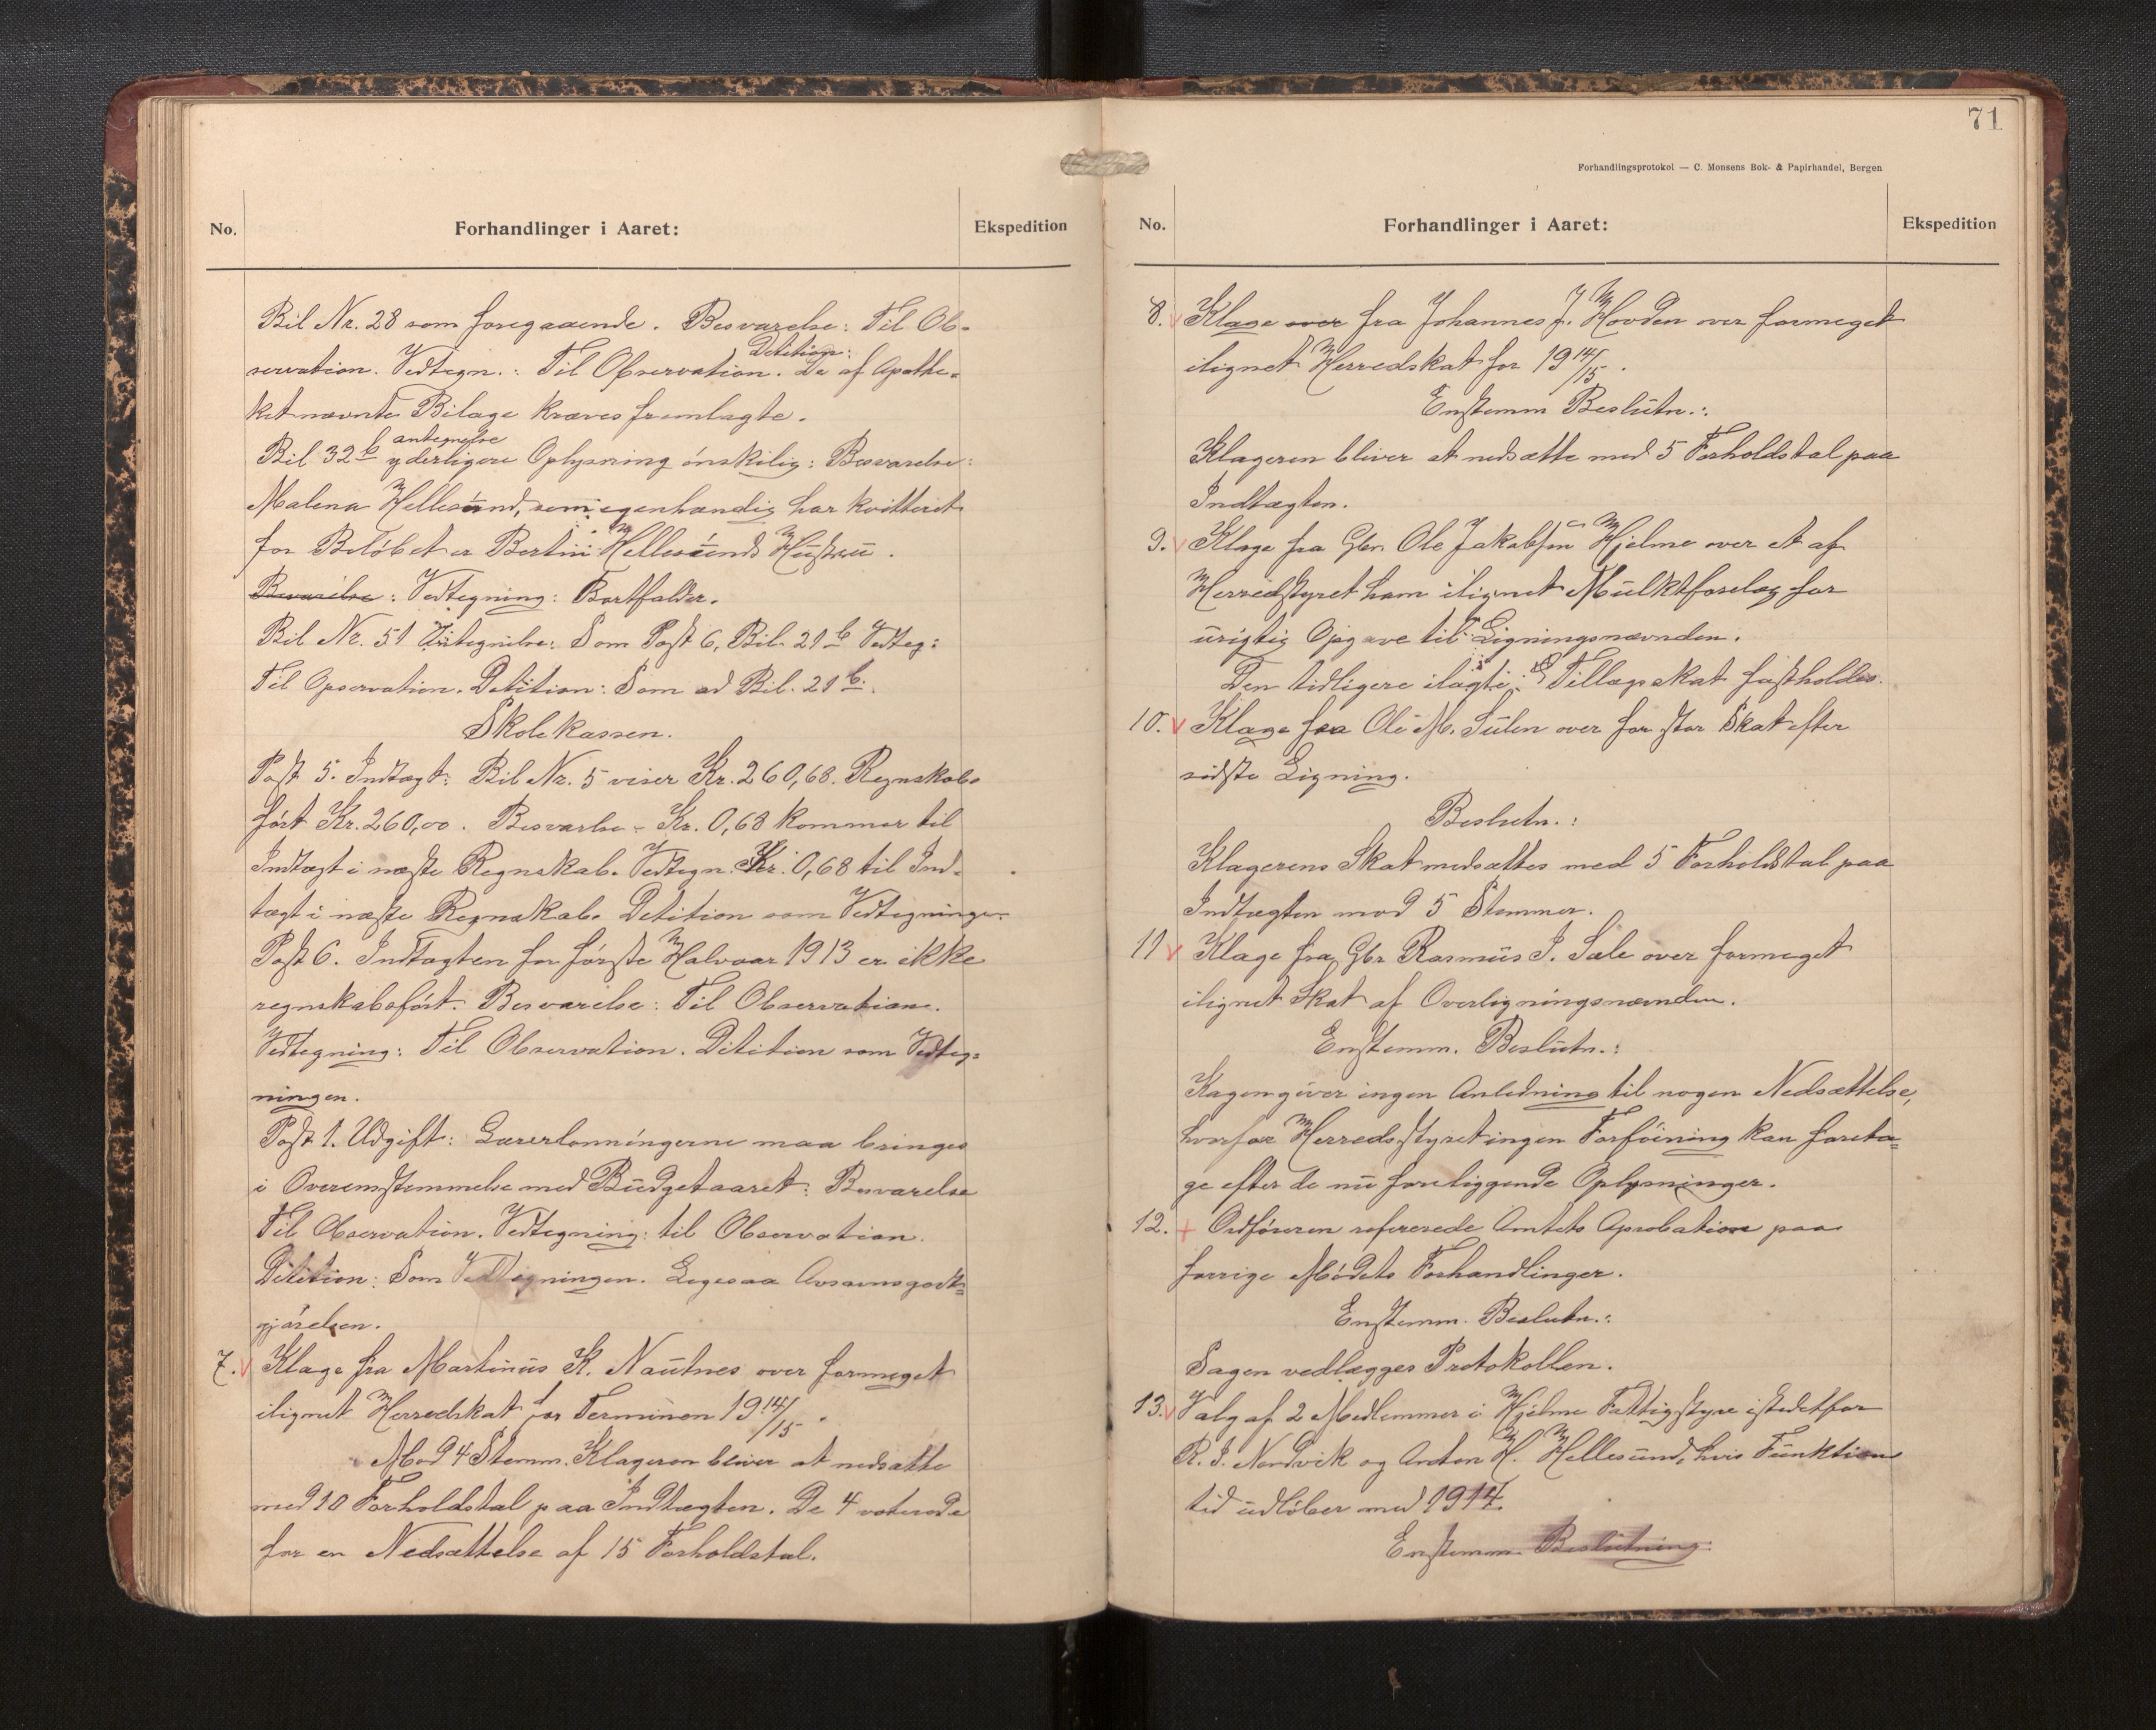 No.
Forhandlinger i Aaret:
Ekspedition
Bil Nr. 28 som foregaaende. Besvarelse: Til Ob-
servation. Vedtegn.: Til Observation. Detition: De af Apothe-
ket nævnte Bilage kræves fremlagte.
Bil 32b antegnelse yderligere Oplysning ønskilig: Besvarelse:
Malena Hellesund, som egenhændig har kvitteret
for Beløbet er Bertin Hellesunds Hustru.
Besvarelse: Vedtegning: Bortfalder.
Bil Nr. 51 Antegnelse: Som Post 6, Bil. 21b Vedteg:
Til Opservation. Detition: Som ad Bil. 21b.
Skolekassen.
Post 5. Indtægt: Bil Nr. 5 viser Kr. 260,68. Regnskabs
ført Kr. 260,00. Besvarlse - Kr. 0,68 kommer til
Indtægt i næste Regnskab. Vedtegn. Kr. 0,68 til Ind-
tægt i næste Regnskab. Detition som Vedtegningen.
Post 6. Indtægten for første Halvaar 1913 er ikke
regnskabsført. Besvarelse: Til Observation.
Vedtegning: Til Observation. Detition som Vedteg-
ningen.
Post 1. Udgift: Lærerlønningerne maa bringes
i Overensstemmelse med Budgetaaret: Besvarelse
Til Observation. Vedtegning: til Observation.
Detition: Som Vedtegningen. Legesaa Avsavnsgodt-
gjørelsen.
7. Klage fra Martinus K. Nautnes over formeget
ilignet Herredskat for Terminen 1914/15.
Mod 4 Stemm. Klageren bliver at nedsætte
med 10 Forholdstal paa Indtægten. De 4 voterede
for en Nedsættelse af 15 Forholdstal.
71
Forhandlingsprotokol — C. Monsens Bok- & Papirhandel, Bergen
No.
Forhandlinger i Aaret:
Ekspedition
8. Klage over fra Johannes J. Hovden over formeget
ilignet Herredskat for 1914/15.
Enstemm Beslutn.:
Klageren bliver at nedsætte med 5 Forholdstal paa
Indtægten.
9. Klage fra Gbr. Ole Jakobsen Hjelme over et af
Herredstyret ham ilignet Mulktforelæg for
urigtig Opgave til Ligningsnævnden.
Den tidligere ilagte Tillægsskat fastholdes.
10. Klage fra Ole M. Sulen over for stor Skat efter
sidste Ligning.
Beslutn.:
Klagerens Skat nedsættes med 5 Forholdstal paa
Indtægten mod 5 Stemmer.
11 Klage fra Gbr Rasmus I. Sæle over formeget
ilignet Skat af Overligningsnævnden.
Enstemm. Beslutn.:
Kagen giver ingen Anledning til nogen Nedsættelse,
hvorfor Herredsstyret ingen Forføining kan foreta-
ge efter de nu foreliggende Oplysninger.
12. Ordføreren refererede Amtets Aprobation paa
forrige Mødets Forhandlinger.
Enstemm. Beslutn.:
Sagen vedlægges Protokollen.
13. Valg af 2 Medlemmer i Hjelme Fattigstyre istedetfor
R. I. Nordvik og Anton H. Hellesund, hvis Funktions
tid udløber med 1914.
Enstemm. Beslutning: